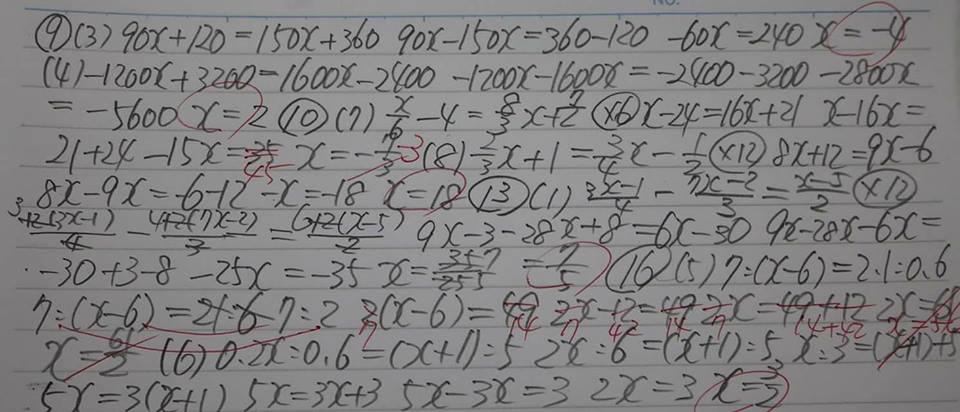 ⑨(3) 90x+120=150x+360 90x-150x=360-120 -60x=240 x=-4
(4)-1200x+3200=1600x-2400 -1200x-1600x=-2400-3200 -2800x
=-5600 x=2 ⑩(7) x/6-4=8/3x+7/2 ×6 x-24=16x+21 x-16x=
21+24 -15x=45 x=-3 (8) 2/3x+1=3/4x-1/2 ×12 8x+12=9x-6
8x-9x=-6-12 -x=-18 x=18 ⑬(1) 3x-1/4-7x-2/3=x-5/2 ×12
12(3x-1)/4-12(7x-2)/3=12(x-5)/2 9x-3-28x+8=6x-30 9x-28x-6x=
-30+3-8 -25x=-35 x=35/25=7/5 ⑯(5)7:(x-6)=2.1:0.6
7:(x-6)=21:6 7:2 2(x-6)=49 2x-12=49 2x=49+12 2x=61
x= (6)0.2x:0.6=(x+1):5 2x:6=(x+1):5 x:3=(x+1):5
5x=3(x+1) 5x=3x+3 5x-3x=3 2x=3 x=3/2